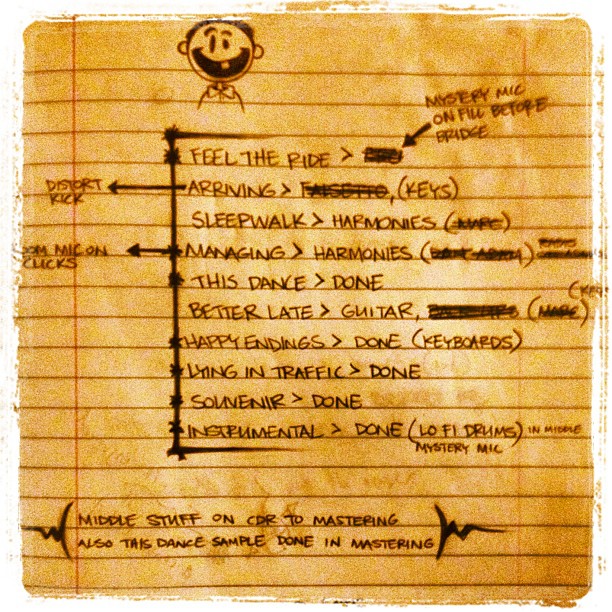 MYSTERY MIC
ON FILL BEFORE
BRIDGE
FEEL THE RIDE >
DISTORT
KICK
ARRIVING > FALSETTO, (KEYS)
SLEEPWALK > HARMONIES (MARC)
MIC ON
CLICKS
MANAGING > HARMONIES
THIS DANCE > DONE
BETTER LATE > GUITAR, (MARC)
HAPPY ENDINGS > DONE (KEYBOARDS)
LYING IN TRAFFIC > DONE
SOUVENIR > DONE
INSTRUMENTAL > DONE (LO FI DRUMS) IN MIDDLE
MYSTERY MIC
MIDDLE STUFF ON CDR TO MASTERING
ALSO THIS DANCE SAMPLE DONE IN MASTERING